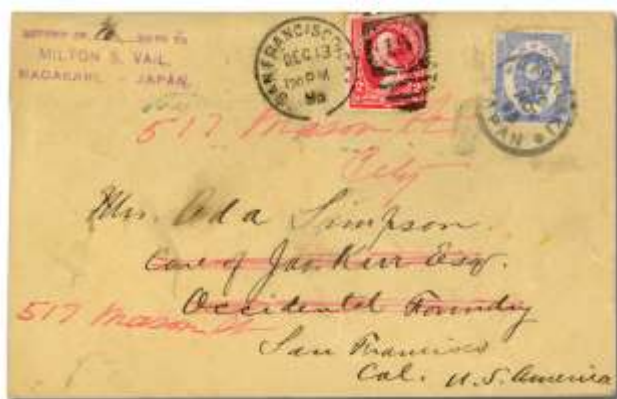 RETURN IN DAYS TO
MILTON S. VAIL,
NAGASAKI, JAPAN.
SAN FRANCISCO
DEC 13
96
JAPAN
517 Mason St
City
Mrs. Ada Simpson.
Care of Jas Kerr Esq.
Occidental Foundry
517 Mason St
San Francisco
Cal. U.S. America